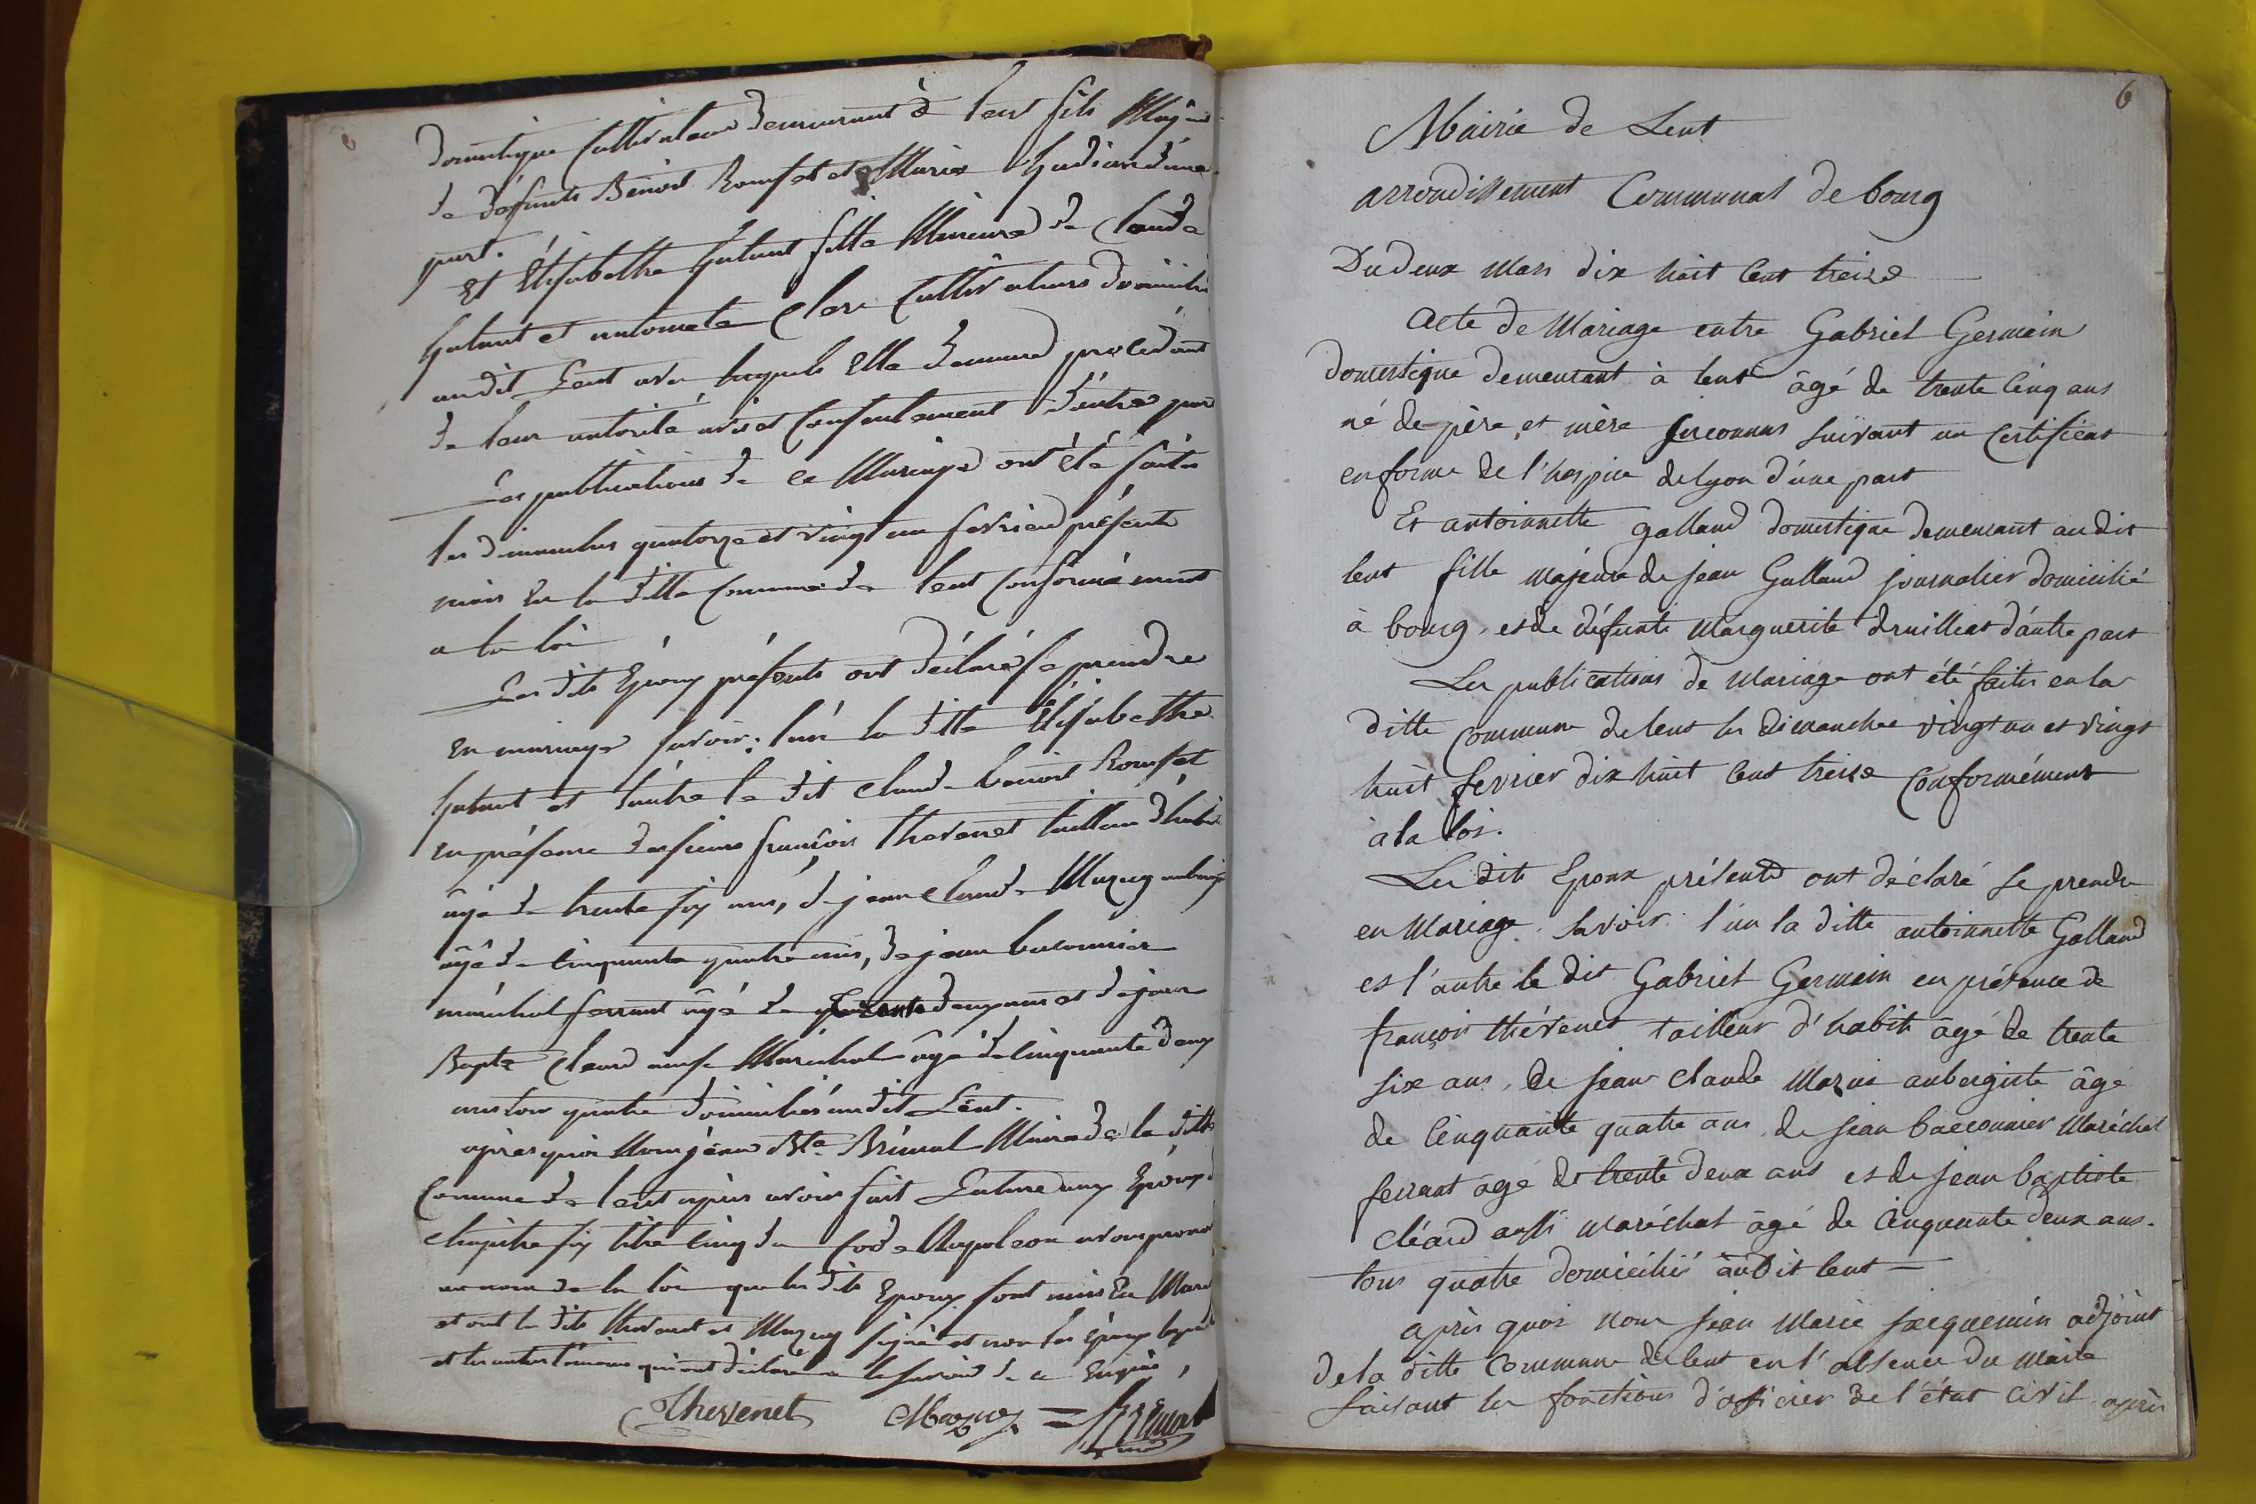 domestique Cultivateur demeurant à lent fils Maj
de défunts Benoit Rousset et Marie d'une
part.
Et Elisabethe Galand fille Mineure de Claude
Galand et antoinette Clerc Cultivateurs domicilié
audit Lent avec lesquels Elle demeure procédant
de leur autorité avis et Consentement d'autre part
Les publications de ce Mariage ont été faites
les dimanches quatorze et vingt un fevrier présent
mois en la ditte Commune de lent Conformément
a la loi
Les dits Epoux présents ont déclaré se prendre
en mariage savoir; l'un la ditte Elisabethe
Galand et l'autre le dit Claude benoit Rousset
en présence des sieurs françois thevenet tailleur d'habit
âgé de trente six ans, de jean Claude Mazuy
âgé de Cinquante quatre ans, de jean baconnier
maréchal ferrant âgé de trente deux ans et de jean
Bapte Cléard aussi Maréchal âgé de Cinquante deux
ans tous quatre domiciliés audit Lent.
après quoi Nous jean Bte Brunal Maire de la ditte
Commune de lent après avoir fait Lecture aux Epoux
Chapitre six titre cinq du Code Napoleon avons
au nom de la loi que les dits Epoux sont unis En
et ont les dits thevenet et Mazuy signé et non les Epoux
et les autres témoins qui ont déclaré ne le savoir de ce Enquis,
Thevenet Mazuy =
6
Mairie de Lent
arrondissement Communal de bourg
Du deux Mars dix huit Cent treize
Acte de Mariage entre Gabriel Germain
domestique demeurant à lent âgé de trente Cinq ans
né de père et mère Inconnus suivant un Certificat
en forme de l'hospice de lyon d'une part
Et antoinette galland domestique demeurant audit
lent fille Majeure de jean Galland journalier domicilié
à bourg, et de défunte Marguerite druillet d'autre part
Les publications de Mariage ont été faites en la
ditte Commune de lent les Dimanches vingt un et vingt
huit fevrier dix huit Cent treize Conformément
à la loi.
Les dits Epoux présents ont déclaré se prendre
en Mariage. savoir. l'un la ditte antoinette Galland
et l'autre le dit Gabriel Germain en présence de
françois thévenet tailleur d'habits âgé de trente
six ans, de jean Claude Mazui aubergiste âgé
de Cinquante quatre ans. de jean bacconnier Maréchal
ferrant âgé de trente deux ans et de jean baptiste
Cléard aussi Maréchal âgé de Cinquante deux ans.
tous quatre domiciliés audit lent
après quoi Nous jean Marie jacquemin adjoint
de la ditte Commune de lent en l'absence du Maire
faisant les fonctions d'officier de l'état civil. après